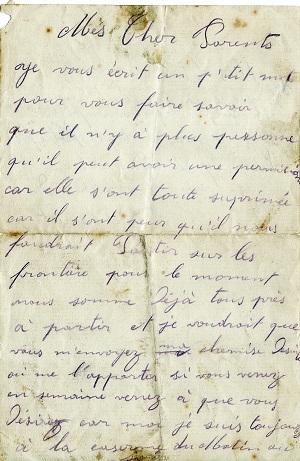 Més Cher Parents
Je vous écrit un p'tit mot
pour vous faire savoir
que il n'y à plus personne
qu'il peut avoir une permition
car elle s'ont toute suprimée
car il s'ont peur qu'il nous
faudrait Partir sur les
frontière pour le moment
nous somme Déjà tous près
à partir et je voudrait que
vous m'envoyez ma chemise
ou me l'apporter si vous venez
en semaine venez à que vous
Désirez car moi je suis toujours
à la caserne du Matin au